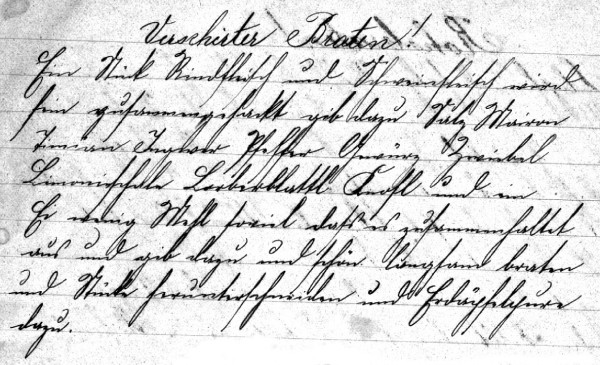 Verschirter Braten!
Ein Stück Rindfleisch und Schweinfleisch wird
fein zusammengehackt gib dazu Salz Mairon
Timian Ingwer Pfeffer Gewürz Zwiebel
Limonischale Lorberblattl Knofl und ein
Ei wenig Mehl soviel daß es zusammenhaltet
aus und gib dazu und schön langsam braten
und Stücke herunterschneiden und Erdäpfelpure
dazu.